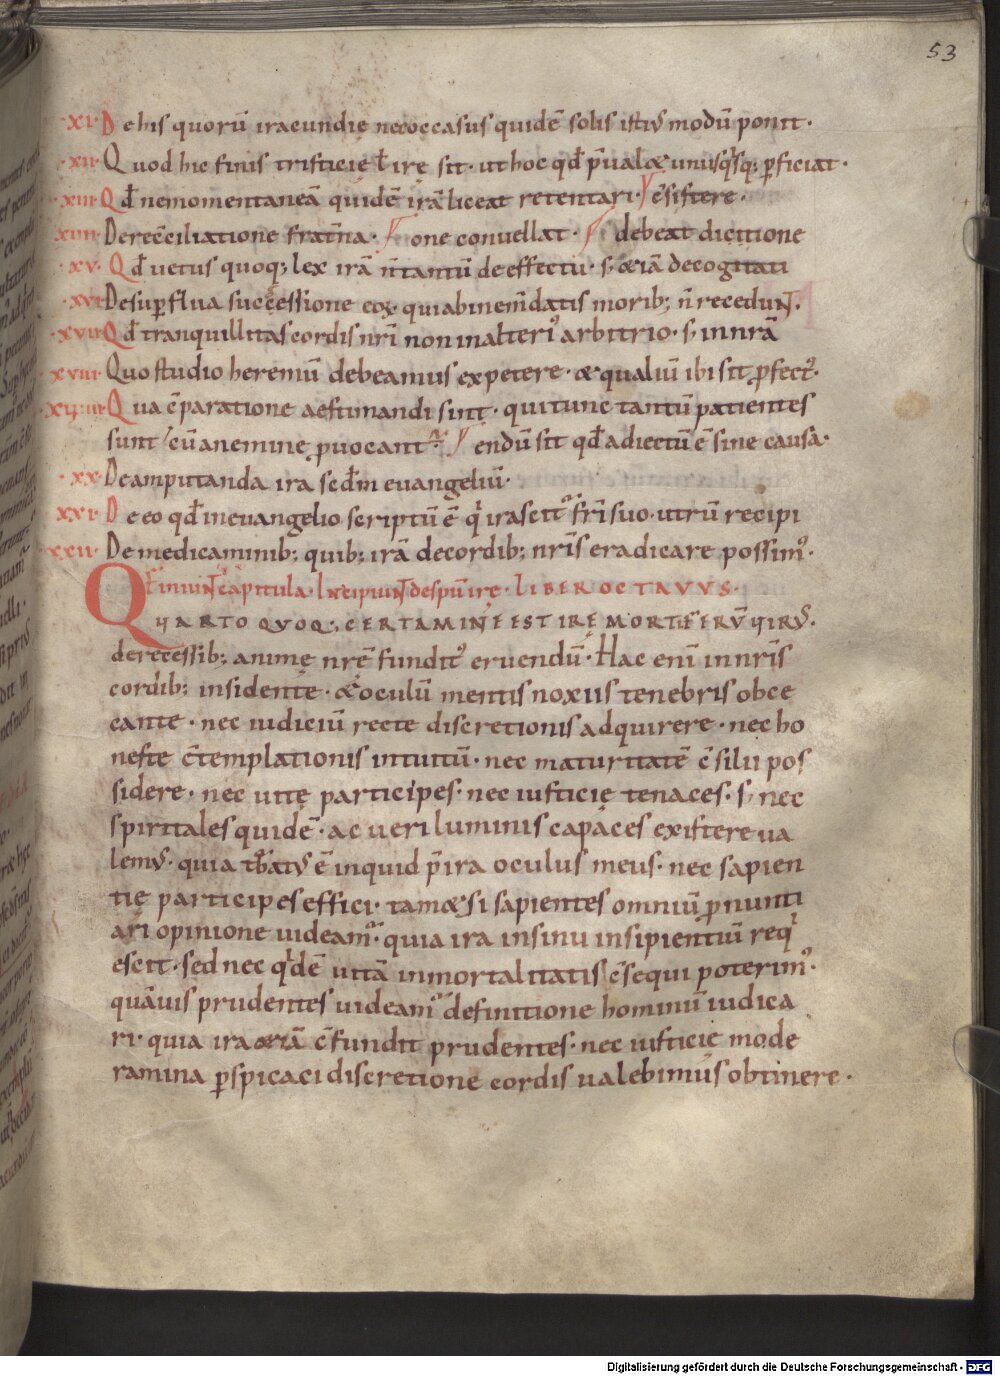 53
·XI· De his quorū iracundię nec occasus quidē solis istiꝰ modū ponit·
·XII· Quod hic finis tristicię ł irę sit· ut hoc qđ p̄ualꝫ & unusq̇sq; ꝑficiat·
·XIII· Qđ ne momentaneā quidē irā liceat retentari· c̄sistere·
·XIIII· De rec̄ciliatione frat̄na· one conuellat· debeat dicitione
·XV· Qđ uetus quoq; lex irā n̄ tantū de effectu· s; & iā de cogitati
·XVI· De suꝑflua successione eoꝝ qui ab inem̄datis morib; n̄ recedunt·
·XVII· Qđ tranquillitas cordis nr̄i non in alteriꝰ arbitrio· s; in nrā
·XVIII· Quo studio heremū debeamus expetere· & qualiū ibi sit ꝑfectꝰ·
·XVIIII· Qua c̄paratione aestimandi sint· qui tunc tantū patientes
sunt cū a nemine ꝓuocant· endū sit qđ adiectū ē sine causa·
·XX· De amputanda ira scđm euangeliū·
·XXI· De eo qđ in euangelio scriptū ē q̇ irascit fr̄i suo· utrū recipi
·XXII· De medicaminib; quib; irā de cordib; nr̄is eradicare possimꝰ·
Finiunt capitula· Incipiunt de spū irę· LIBER OCTAVVS·
QUARTO QVOQ; CERTAMINE EST IRĘ MORTIFERV̄ UIRꝰ·
de recessib; animę nrę̄ funditꝰ eruendū· Hac enī in nr̄is
cordib; insidente· & oculū mentis noxiis tenebris obce
cante· nec iudiciū recte discretionis adquirere· nec ho
neste c̄templationis intuitū· nec maturitatē c̄silii pos
sidere· nec uitę participes· nec iusticię tenaces· s; nec
spiritales quidē· ac ueri luminis capaces existere ua
lemꝰ· quia t̄batꝰ ē inquid p̄ ira oculus meus· nec sapien
tię participes effici· tam&si sapientes omniū ꝓnunti
ari opinione uideam̄· quia ira in sinu insipientiū req̇
escit· sed nec q̇dē uitā inmortalitatis c̄sequi poterimꝰ·
quāuis prudentes uideam̄ definitione hominū iudica
ri· quia ira &iā c̄fundit prudentes· nec iusticię mode
ramina ꝑspicaci discretione cordis ualebimus obtinere·
Digitalisierung gefördert durch die Deutsche Forschungsgemeinschaft - DFG